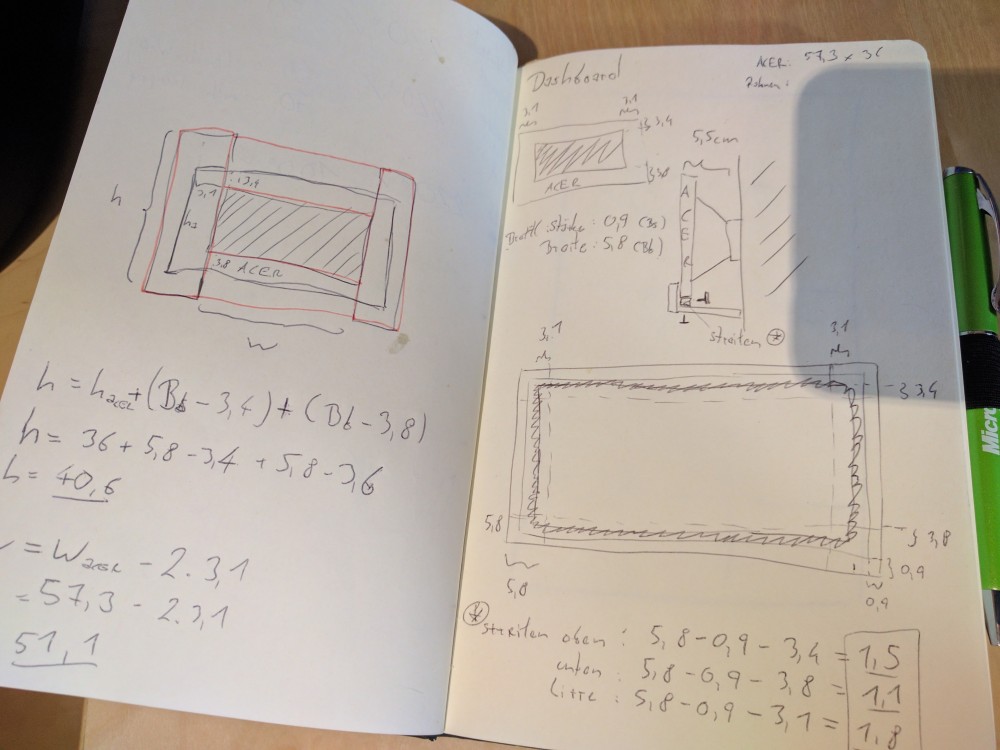 h
3,1
3,4
h₂
3,8 ACER
w
h = hacer + (Bb - 3,4) + (Bb - 3,8)
h = 36 + 5,8 - 3,4 + 5,8 - 3,6
h = 40,6
= Wacer - 2 · 3,1
= 57,3 - 2 · 3,1
51,1
Dashboard
ACER: 57,3 x 36
Rahmen:
3,1
3,1
3,4
3,8
ACER
5,5cm
ACER
Brett: Stärke: 0,9 (Bs)
Breite: 5,8 (Bb)
streifen *
3,1
3,1
3,4
5,8
3,8
0,9
5,8
0,9
* streifen oben: 5,8 - 0,9 - 3,4 = 1,5
unten: 5,8 - 0,9 - 3,8 = 1,1
5,8 - 0,9 - 3,1 = 1,8
Micro